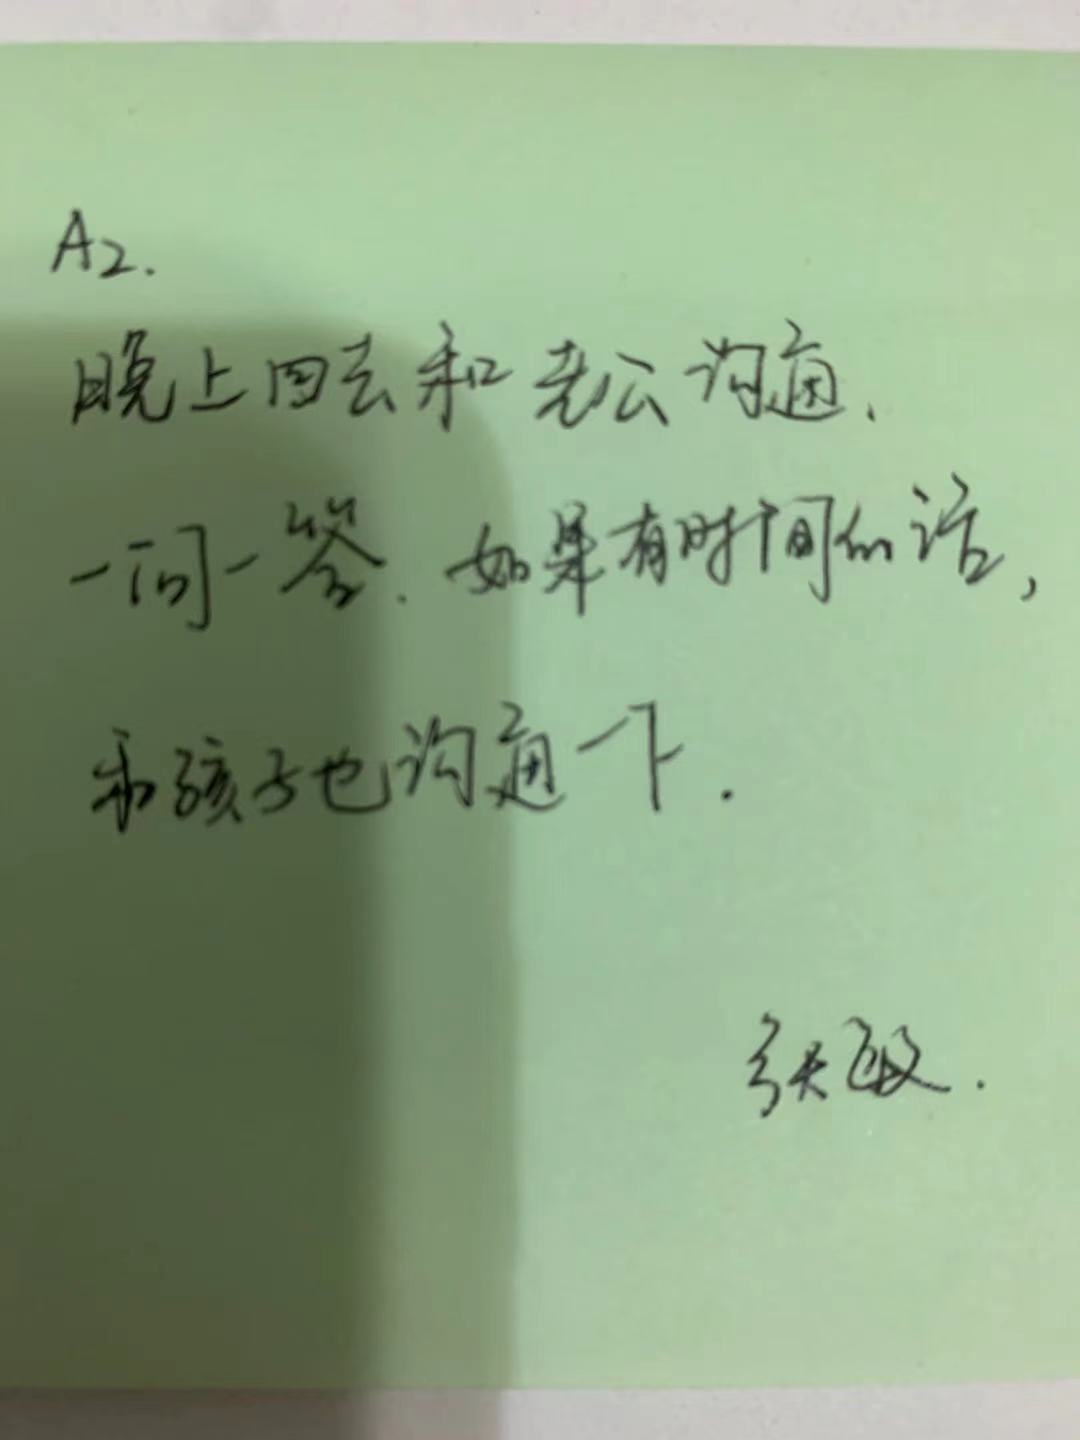 A2.
晚上回去和老公沟通.
一问一答.如果有时间的话,
和孩子也沟通一下.
张敏.